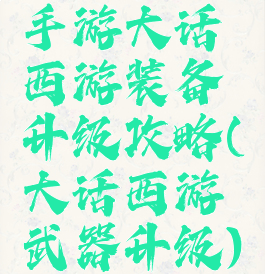 手游大话
西游装备
升级攻略(
大话西游
武器升级)